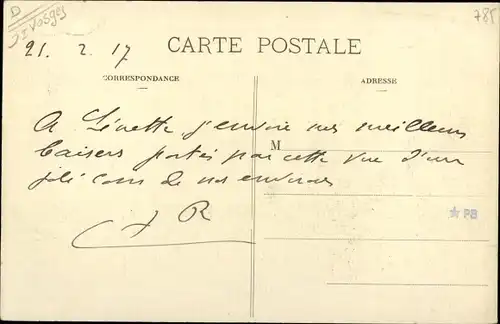 D
Vosges
785
21. 2. 17
CARTE POSTALE
CORRESPONDANCE
ADRESSE
A Ginette j'envoie mes meilleurs
M
baisers portés par cette vue d'un
joli coin de nos environs
R
★ PB